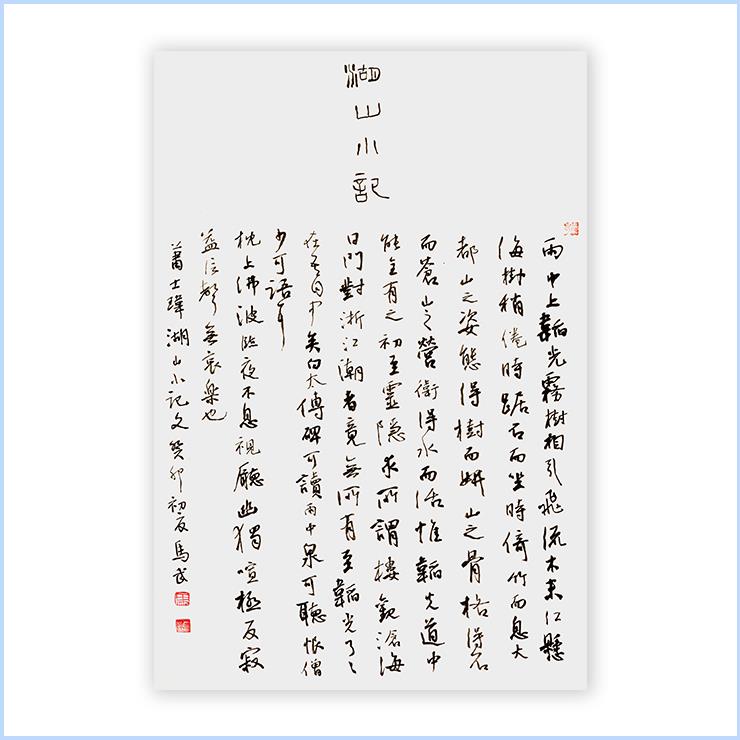 湖山小記
雨中上韜光霧樹相引飛流木末江懸
海樹稍倦時踞石而坐時倚竹而息大
都山之姿態得樹而妍山之骨格得石
而蒼山之營衛得水而活惟韜光道中
能全有之初至靈隱求所謂樓觀滄海
日門對浙江潮者竟無所有至韜光了々
在吾目中矣白太傅碑可讀雨中泉可聽恨僧
少可語耳
枕上沸波竟夜不息視聽幽獨喧極反寂
益信聲無哀樂也
蕭士瑋湖山小記文癸卯初夏馬武